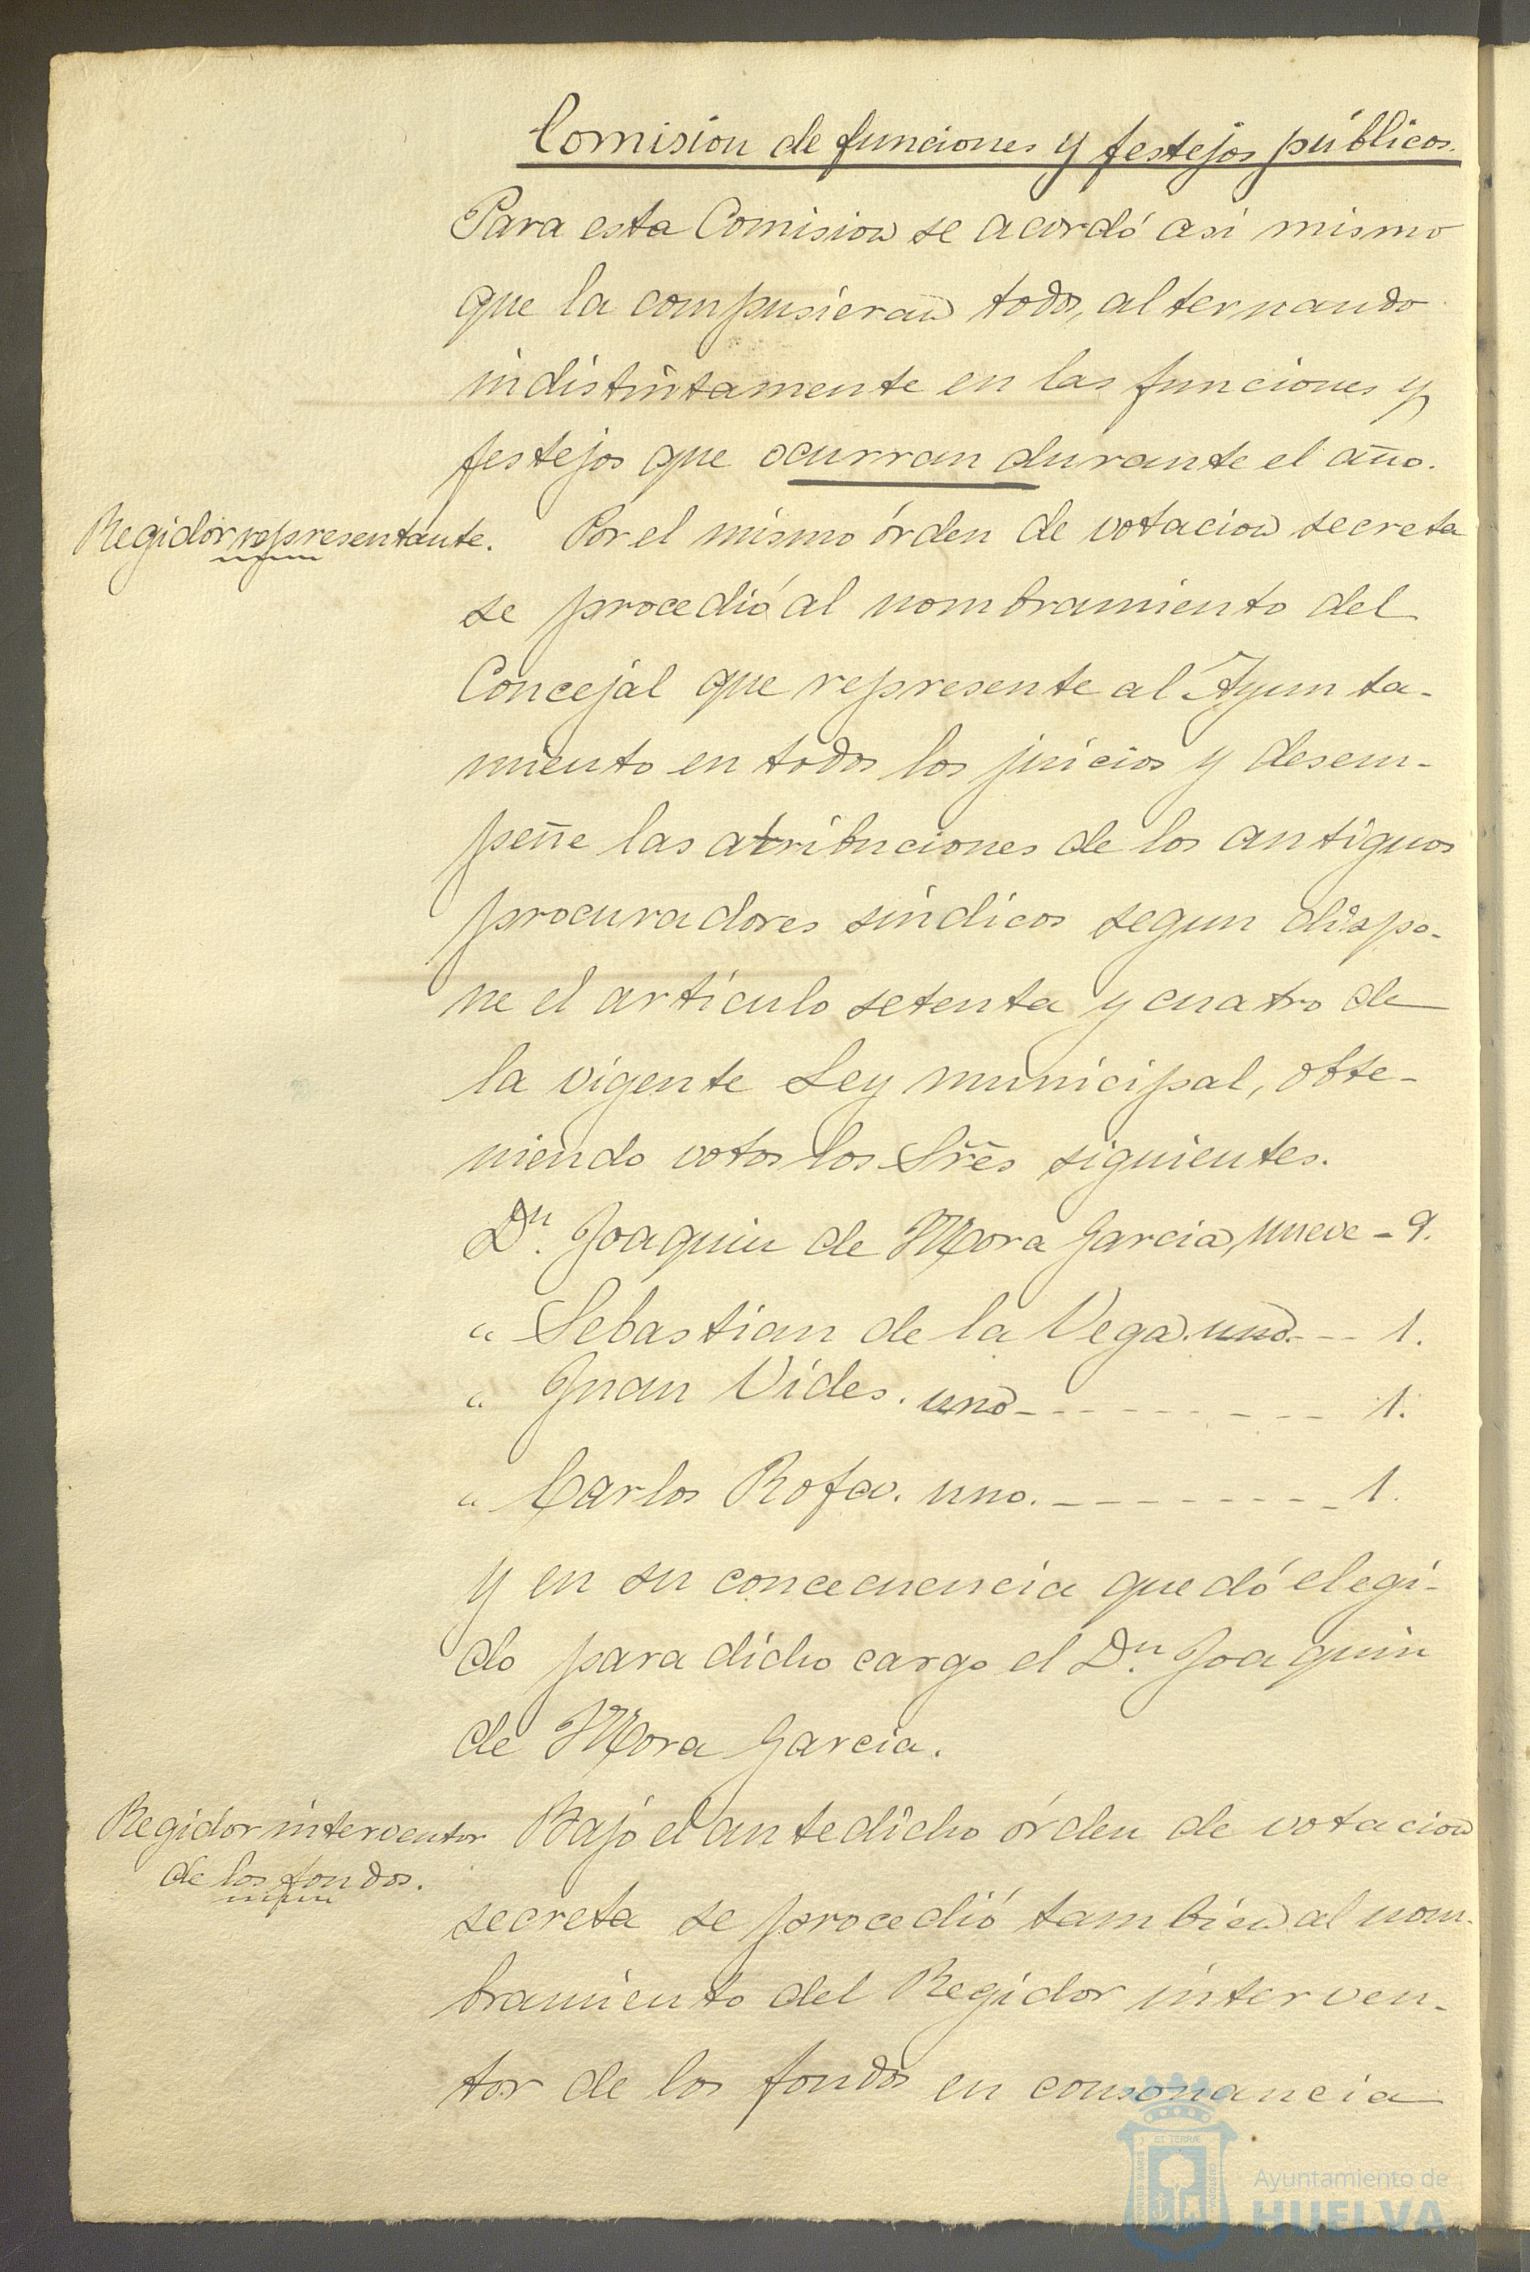 Comision de funciones y festejos públicos.
Para esta Comision se acordó asi mismo
que la compusieran todos, alternando
indistintamente en las funciones y
festejos que ocurran durante el año.
Regidor representante. Por el mismo órden de votacion secreta
se procedió al nombramiento del
Concejal que represente al Ayunta-
miento en todos los juicios y desem-
peñe las atribuciones de los antiguos
procuradores sindicos segun dispo-
ne el artículo setenta y cuatro de
la vigente Ley municipal, obte-
niendo votos los Sr̃es siguientes.
Dn. Joaquin de Mora Garcia, nueve - 9.
" Sebastian de la Vega. uno. - - - 1.
" Juan Vides. uno - - - - - - - - - 1.
" Carlos Rofa. uno. - - - - - - - - - 1.
y en su concecuencia quedó elegi-
do para dicho cargo el Dn. Joaquin
de Mora Garcia.
Regidor interventor
de los fondos.
Bajo el antedicho órden de votacion
secreta se procedió tambien al nom-
bramiento del Regidor interven-
tor de los fondos en consonancia
Ayuntamiento de
HUELVA